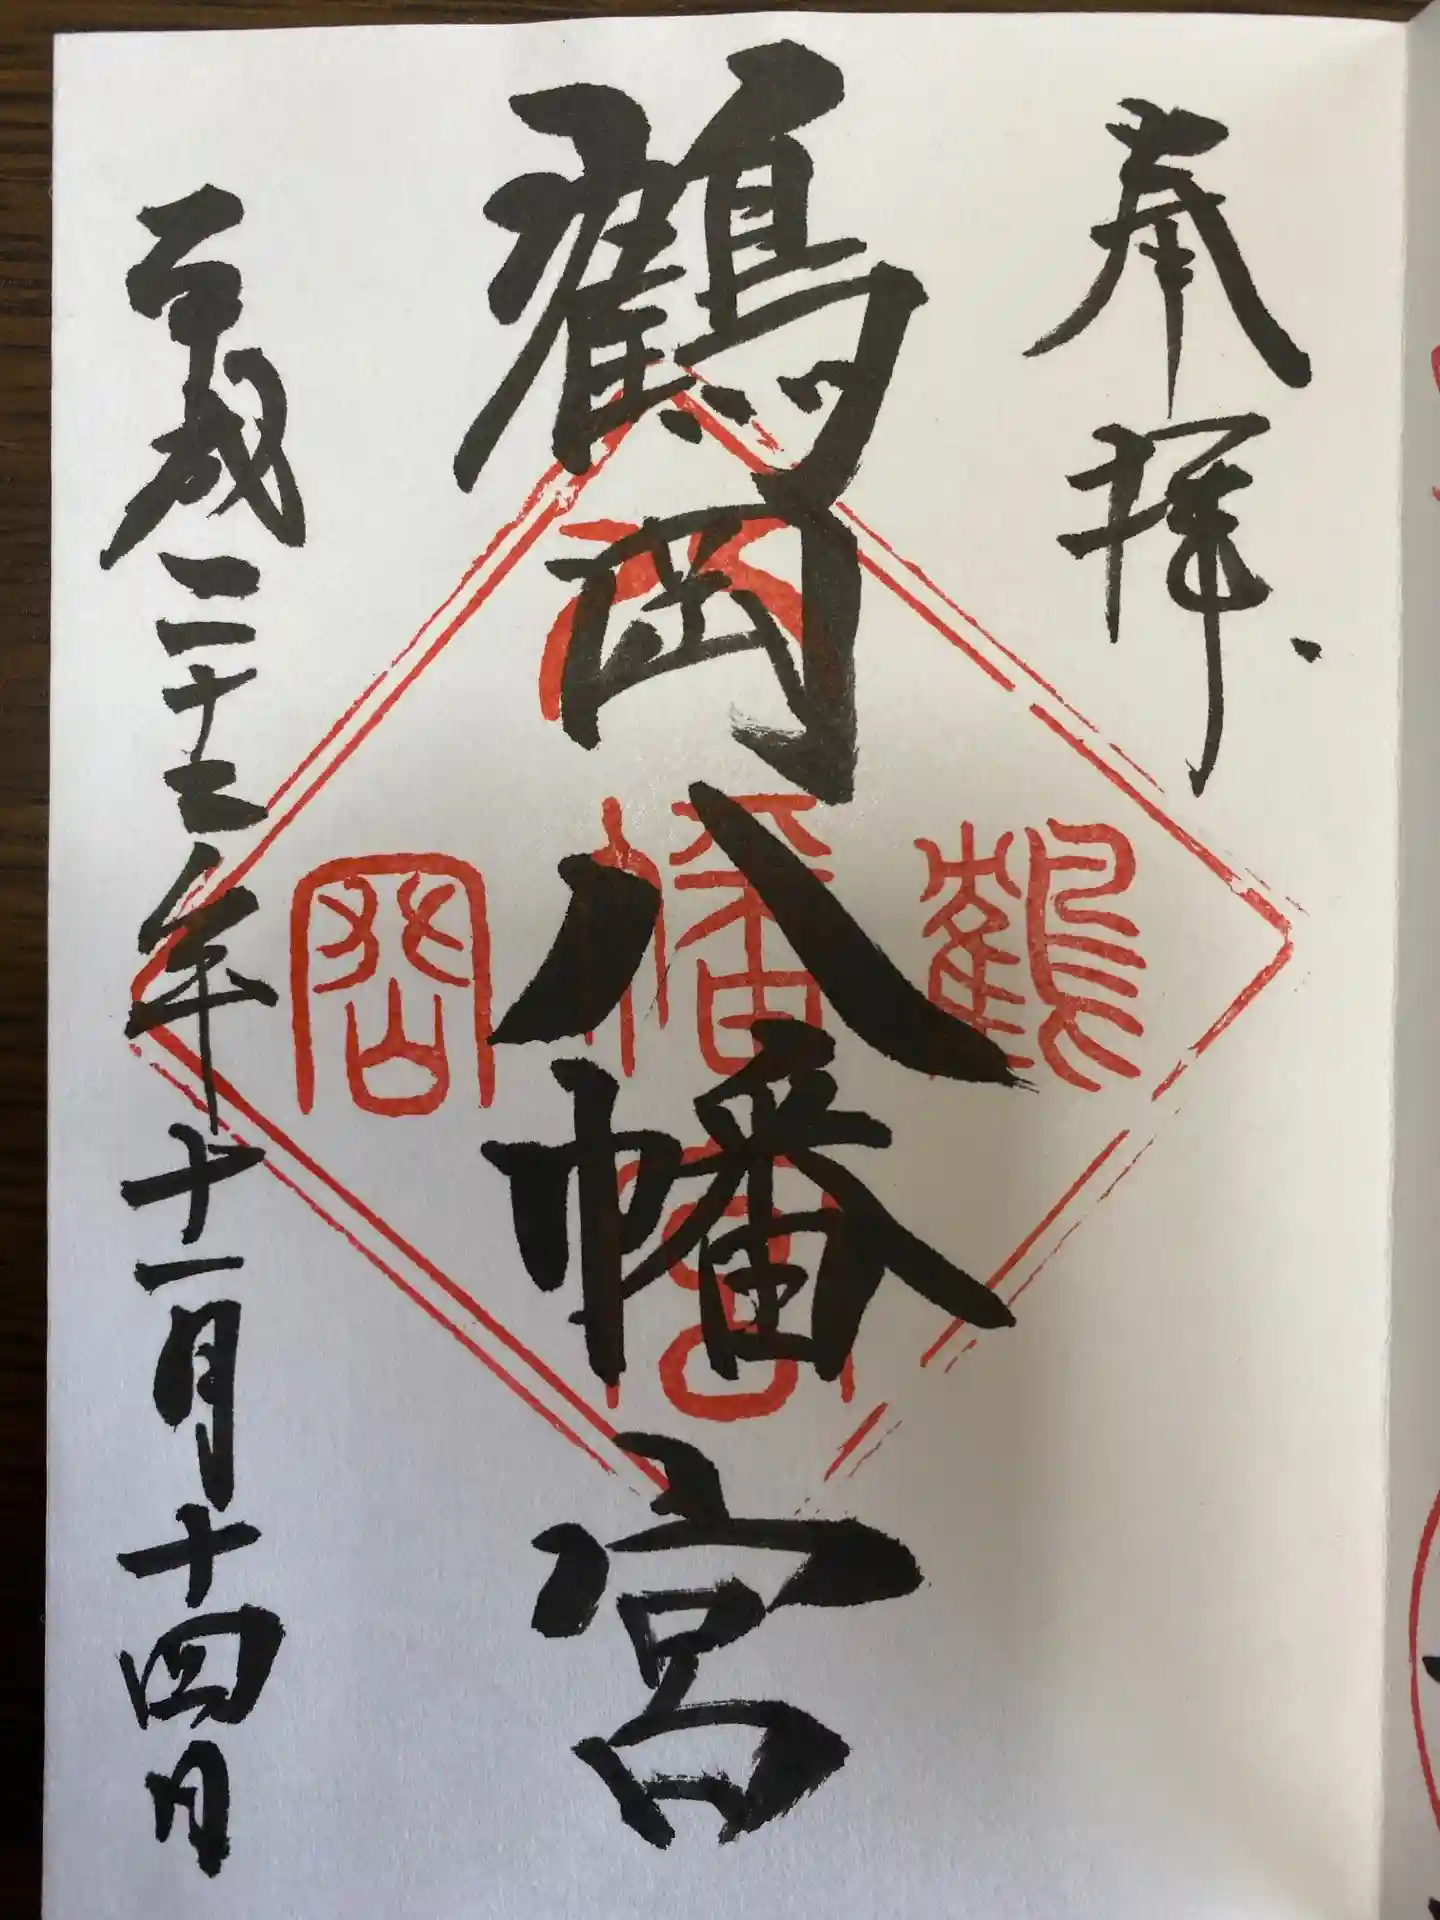 奉拝
鶴岡八幡宮
平成二十二年十一月十四日
鶴
岡
八幡宮